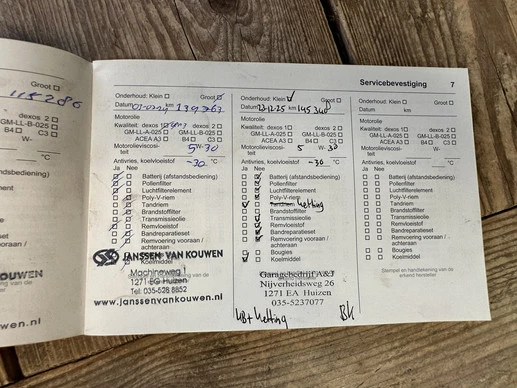 Servicebevestiging 7
Groot
118280
dexos 2
GM-LL-B-025
B4 C3
W-
°C
bediening)
OUWEN
en.nl
Onderhoud: Klein Groot
Datum km
Motorolie
Kwaliteit: dexos 1 dexos 2
GM-LL-A-025 GM-LL-B-025
ACEA A3 B4 C3
Motorolieviscosi-
teit 5W-30
Antivries, koelvloeistof -30 °C
Ja Nee
Batterij (afstandsbediening)
Pollenfilter
Luchtfilterelement
Poly-V-riem
Tandriem
Brandstoffilter
Transmissieolie
Remvloeistof
Bandreparatieset
Remvoering vooraan /
achteraan
JANSSEN VAN KOUWEN
Koelmiddel
Machineweg 1
1271 EG Huizen
Tel: 035-528 8852
www.janssenvankouwen.nl
Onderhoud: Klein Groot
Datum 12-12-25 km 145340
Motorolie
Kwaliteit: dexos 1 dexos 2
GM-LL-A-025 GM-LL-B-025
ACEA A3 B4 C3
Motorolieviscosi-
teit 5 W- 30
Antivries, koelvloeistof -30 °C
Ja Nee
Batterij (afstandsbediening)
Pollenfilter
Luchtfilterelement
Poly-V-riem
Tandriem ketting
Brandstoffilter
Transmissieolie
Remvloeistof
Bandreparatieset
Remvoering vooraan /
achteraan
Bougies
Koelmiddel
Garagebedrijf A&J
Nijverheidsweg 26
1271 EA Huizen
035-5237077
ketting
Onderhoud: Klein Groot
Datum km
Motorolie
Kwaliteit: dexos 1 dexos 2
GM-LL-A-025 GM-LL-B-025
ACEA A3 B4 C3
Motorolieviscosi-
teit W-
Antivries, koelvloeistof °C
Ja Nee
Batterij (afstandsbediening)
Pollenfilter
Luchtfilterelement
Poly-V-riem
Tandriem
Brandstoffilter
Transmissieolie
Remvloeistof
Bandreparatieset
Remvoering vooraan /
achteraan
Bougies
Koelmiddel
Stempel en handtekening van de
erkend hersteller